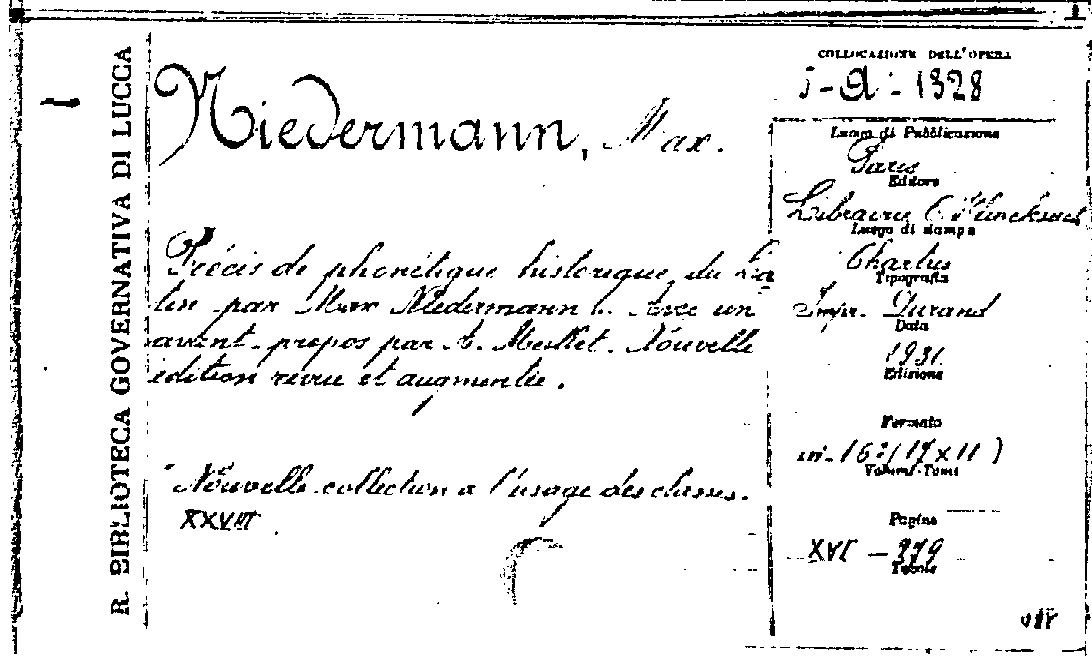 R. BIBLIOTECA GOVERNATIVA DI LUCCA
Niedermann, Max.
Précis de phonétique historique du La
tin par Max Niedermann ... Avec un
avant-propos par A. Meillet. Nouvelle
édition revue et augmentée.
Nouvelle collection a l'usage des classes.
XXVIII
COLLOCAZIONE DELL'OPERA
I-A-1328
Luogo di Pubblicazione
Paris
Editore
Librairie C. Klincksieck
Luogo di stampa
Chartres
Tipografia
Impr. Durand
Data
1931
Edizione
Formato
in-16° (17 x 11)
Volumi-Tomi
Pagine
XVI - 279
Tavole